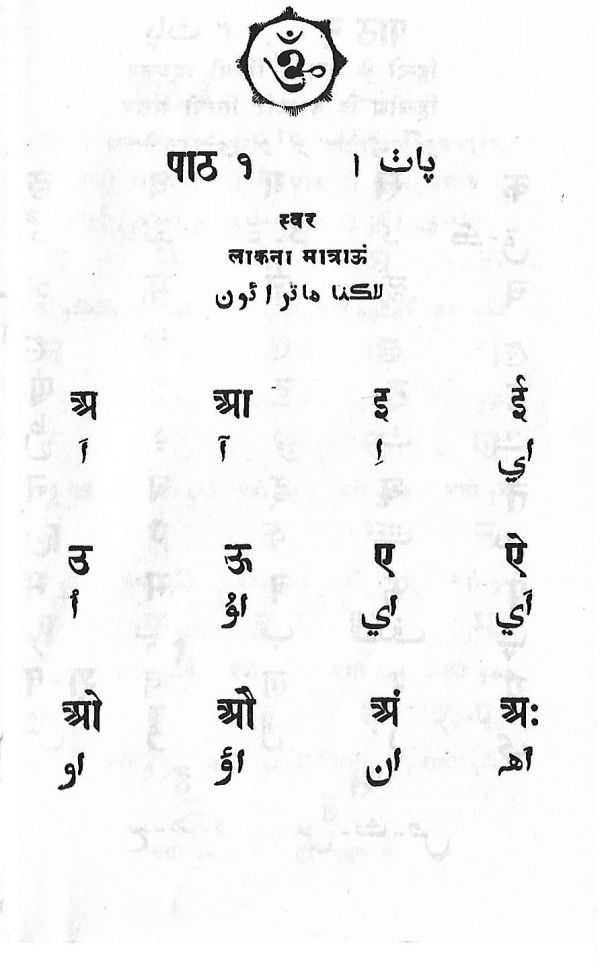 ॐ
पाठ १ پاٺ ١
स्वर
लाकना मात्राऊं
لاڪنا ماترائون
अ आ इ ई
اَ آ اِ اي
उ ऊ ए ऐ
اُ اوُ اي اَي
ओ औ अं अः
او اؤ ان اھ